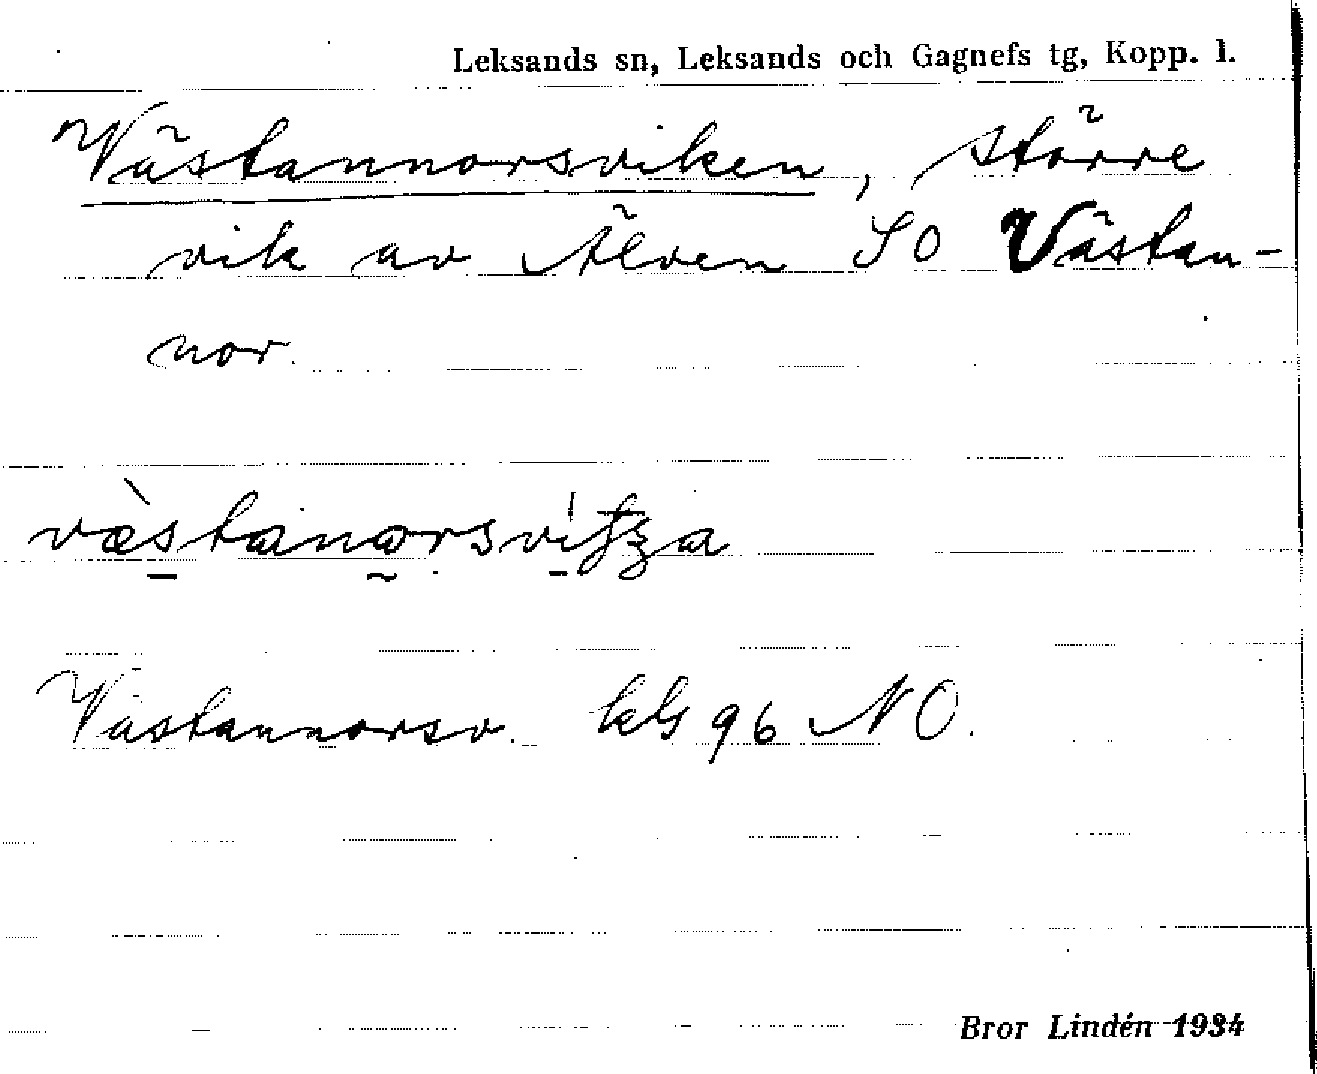 Leksands sn, Leksands och Gagnefs tg, Kopp. l.
Västannorsviken, större
vik av Älven SO Västan-
nor.
Västannorsv. kbl 96 NO.
Bror Lindén 1934